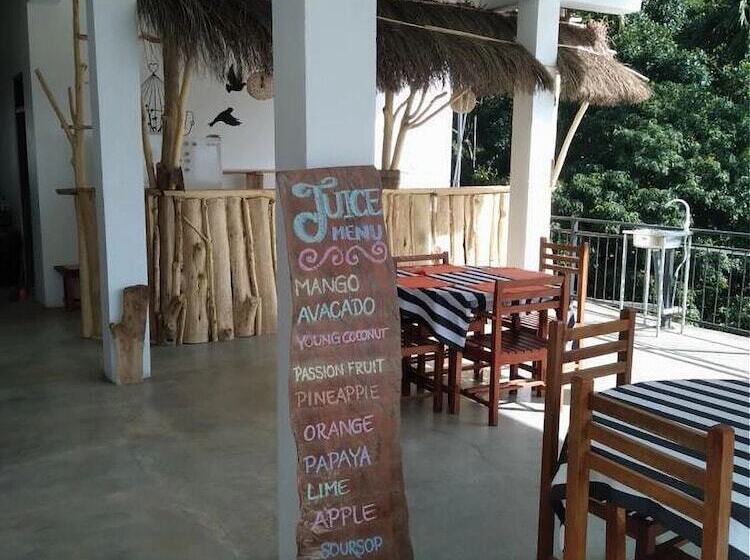 JUICE
MENU
MANGO
AVACADO
YOUNG COCONUT
PASSION FRUIT
PINEAPPLE
ORANGE
PAPAYA
LIME
APPLE
SOURSOP